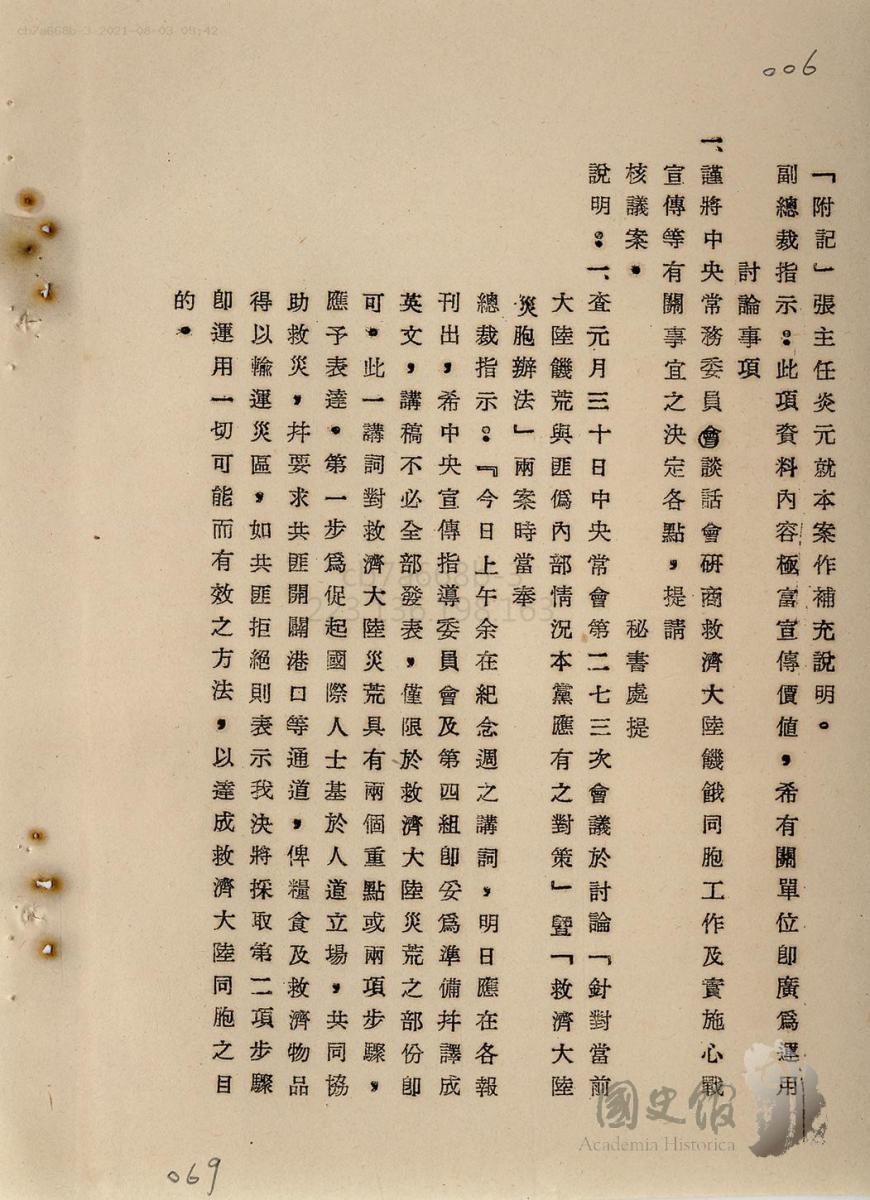 cb7a668b-3 2021-08-03 09:42
006
「附記」張主任炎元就本案作補充說明。
副總裁指示：此項資料內容極富宣傳價值，希有關單位即廣為運用
討論事項
一、謹將中央常務委員會談話會研商救濟大陸饑餓同胞工作及實施心戰
宣傳等有關事宜之決定各點，提請
核議案。
秘書處提
說明：一、查元月三十日中央常會第二七三次會議於討論「針對當前
大陸饑荒與匪偽內部情況本黨應有之對策」暨「救濟大陸
災胞辦法」兩案時當奉
總裁指示：『今日上午余在紀念週之講詞，明日應在各報
刊出，希中央宣傳指導委員會及第四組即妥為準備并譯成
英文，講稿不必全部發表，僅限於救濟大陸災荒之部份即
可。此一講詞對救濟大陸災荒具有兩個重點或兩項步驟，
應予表達。第一步為促起國際人士基於人道立場，共同協
助救災，并要求共匪開闢港口等通道，俾糧食及救濟物品
得以輸運災區，如共匪拒絕則表示我決將採取第二項步驟
即運用一切可能而有效之方法，以達成救濟大陸同胞之目
的。
069
國史館
Academia Historica